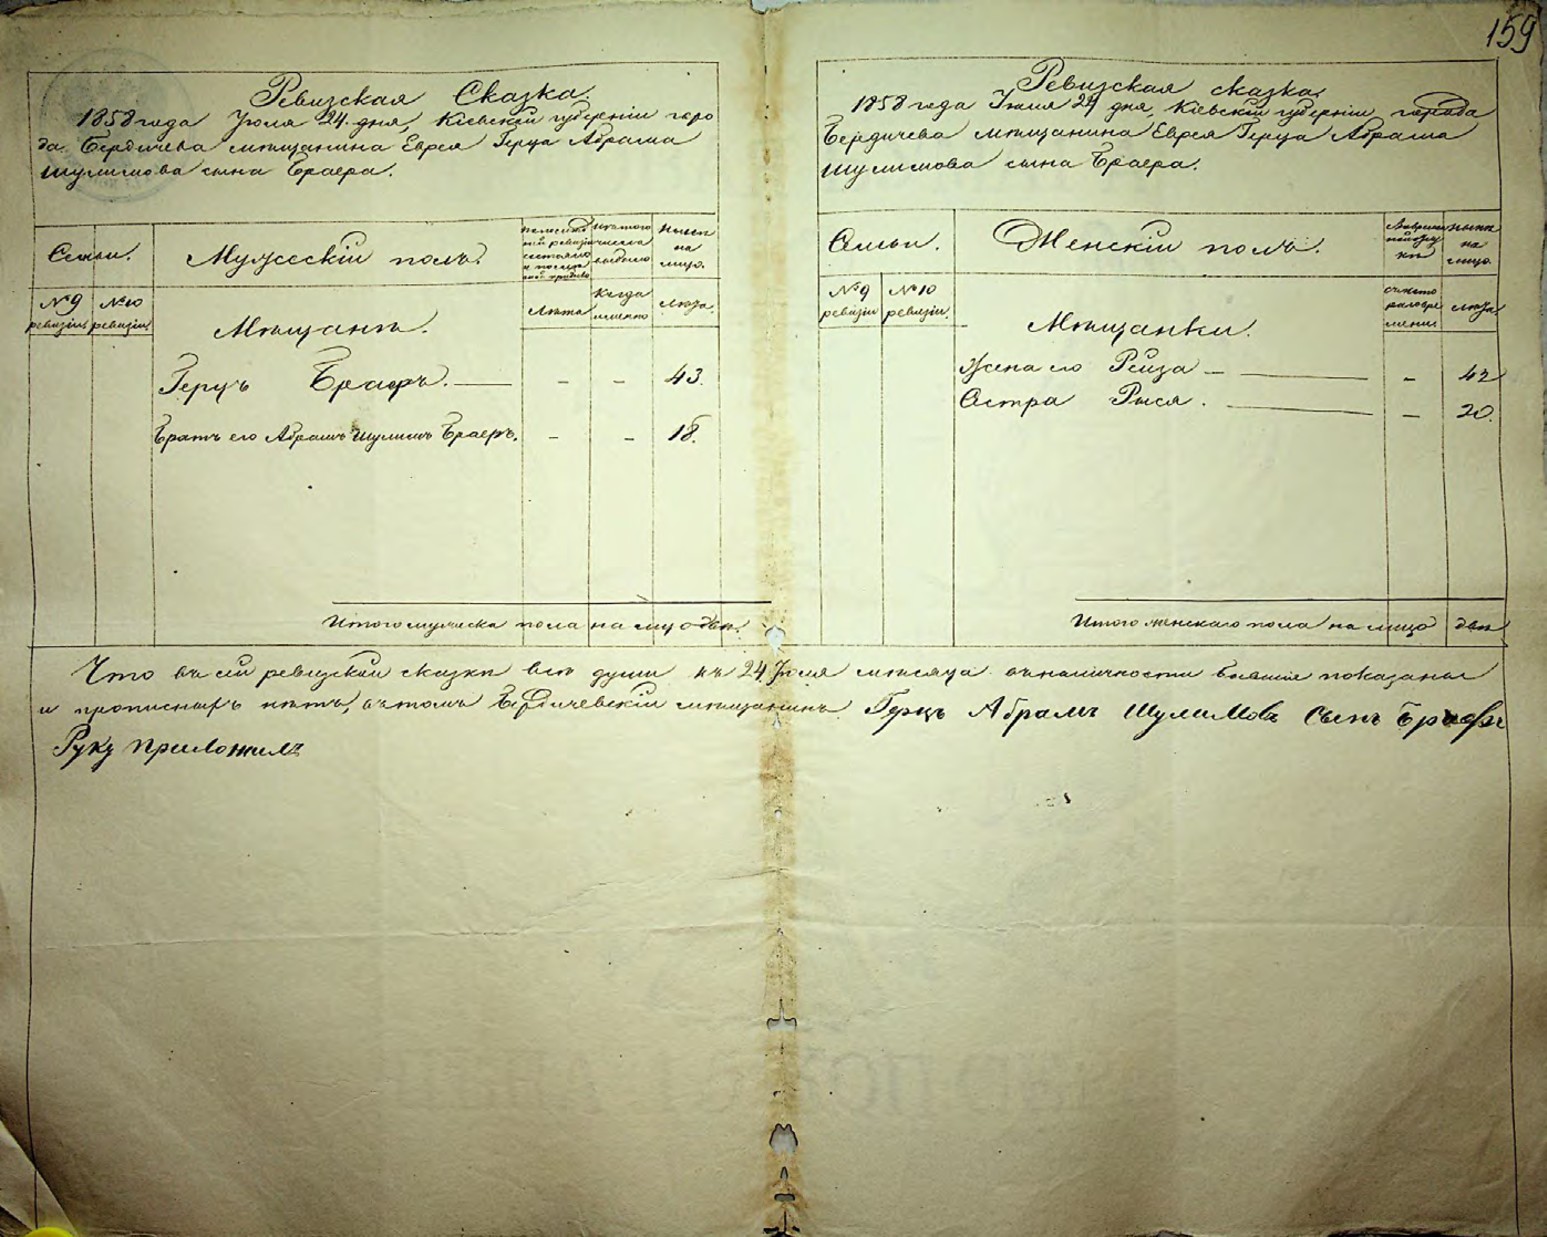 159
Ревизская Сказка.
1858 года Июля 24. дня, Кіевской губерніи горо
да Бердичева мѣщанина Еврея Герца Абрама
Шулимова сына Браера.
Семьи.
Мужескій полъ.
Нынѣ
на
лицо.
№ 9
ревизіи
№ 10
ревизіи
Мѣщанѣ.
Лѣта
Когда
именно
Лѣта.
Герцъ Браеръ. — - - 43.
Братъ его Абрамъ Шулимъ Браеръ. - - 18.
Итого мужеска пола на лицо двѣ.
Ревизская сказка.
1858 года Июля 24 дня, Кіевской губерніи города
Бердичева мѣщанина Еврея Герца Абрама
Шулимова сына Браера.
Семьи.
Женскій полъ.
Нынѣ
на
лицо
№ 9
ревизіи
№ 10
ревизіи.
Мѣщанки.
лѣта
Жена его Рейза - — - 42
Сестра Рыся. — - 20.
Итого женскаго пола на лицо двѣ
Что въ сей ревизской сказкѣ всѣ души къ 24 Июля мѣсяца въ наличности бывшіе показаны
и прописныхъ нѣтъ, въ томъ Бердичевскій мѣщанинъ Герцъ Абрамъ Шулимовъ Сынъ Браеръ
Руку приложилъ